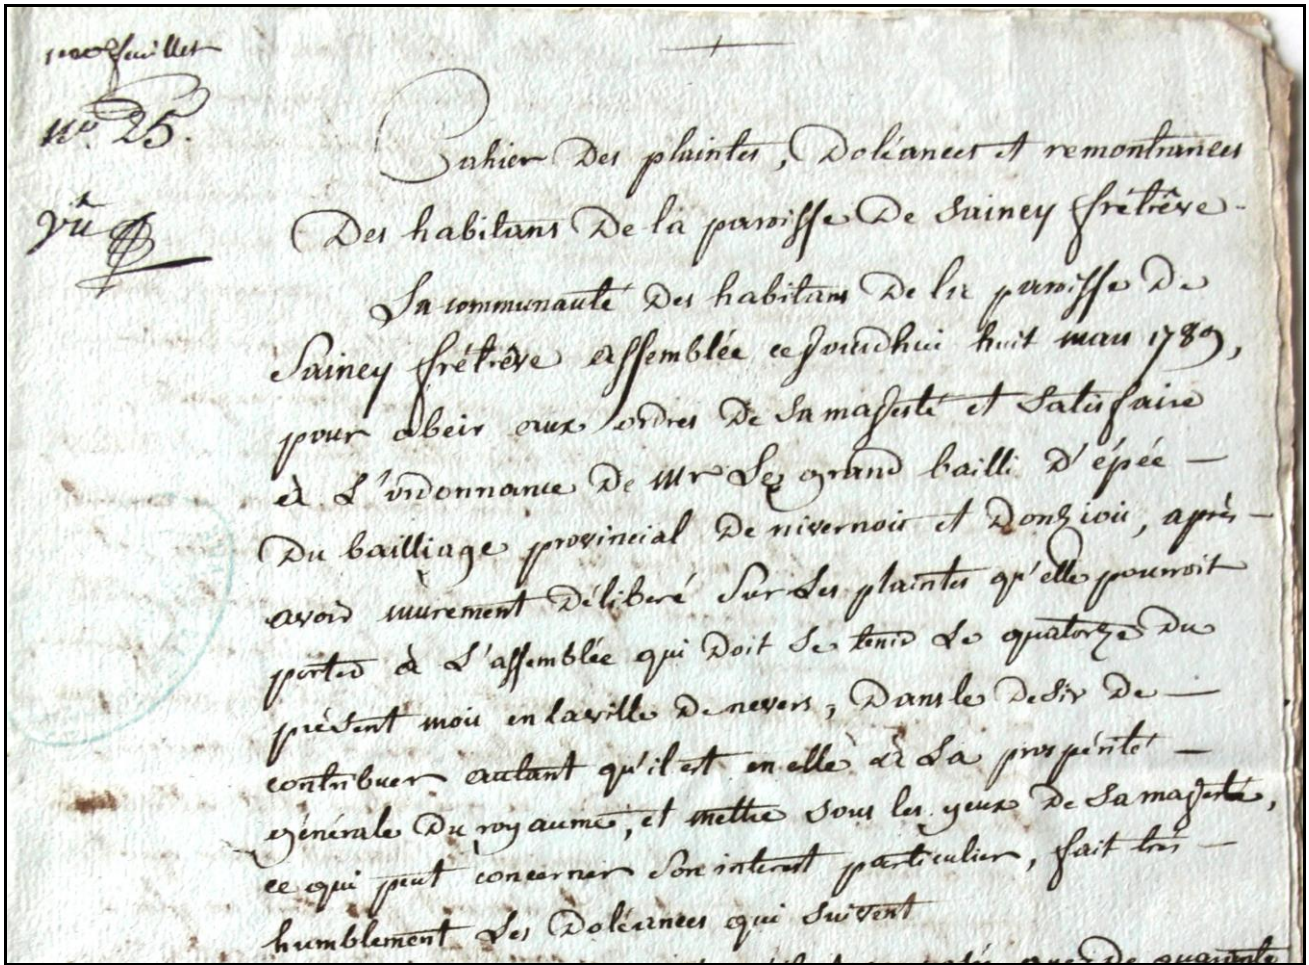 feuillet
n.° 25.
vû
Cahier Des plaintes, Doléances et remontrances
Des habitans De la paroisse De Sainey frétêve
La communauté Des habitans De la paroisse De
Sainey frétêve assemblée cejourdhui huit mars 1789,
pour obeir aux ordres De Sa majesté et Satisfaire
à L'ordonnance De Mr Le grand bailli D'épée —
Du bailliage provincial De nivernois et Donziois, après —
avoir murement Déliberé Sur Les plaintes qu'elle pourroit
porter à L'assemblée qui Doit Se tenir Le quatorze Du
présent mois en la ville De nevers, Dans le Desir De —
contribuer autant qu'il est en elle à La prospérité —
générale Du royaume, et mettre sous les yeux De Sa majesté,
ce qui peut concerner Son interest particulier, fait très —
humblement Les Doléances qui suivent
De quarante